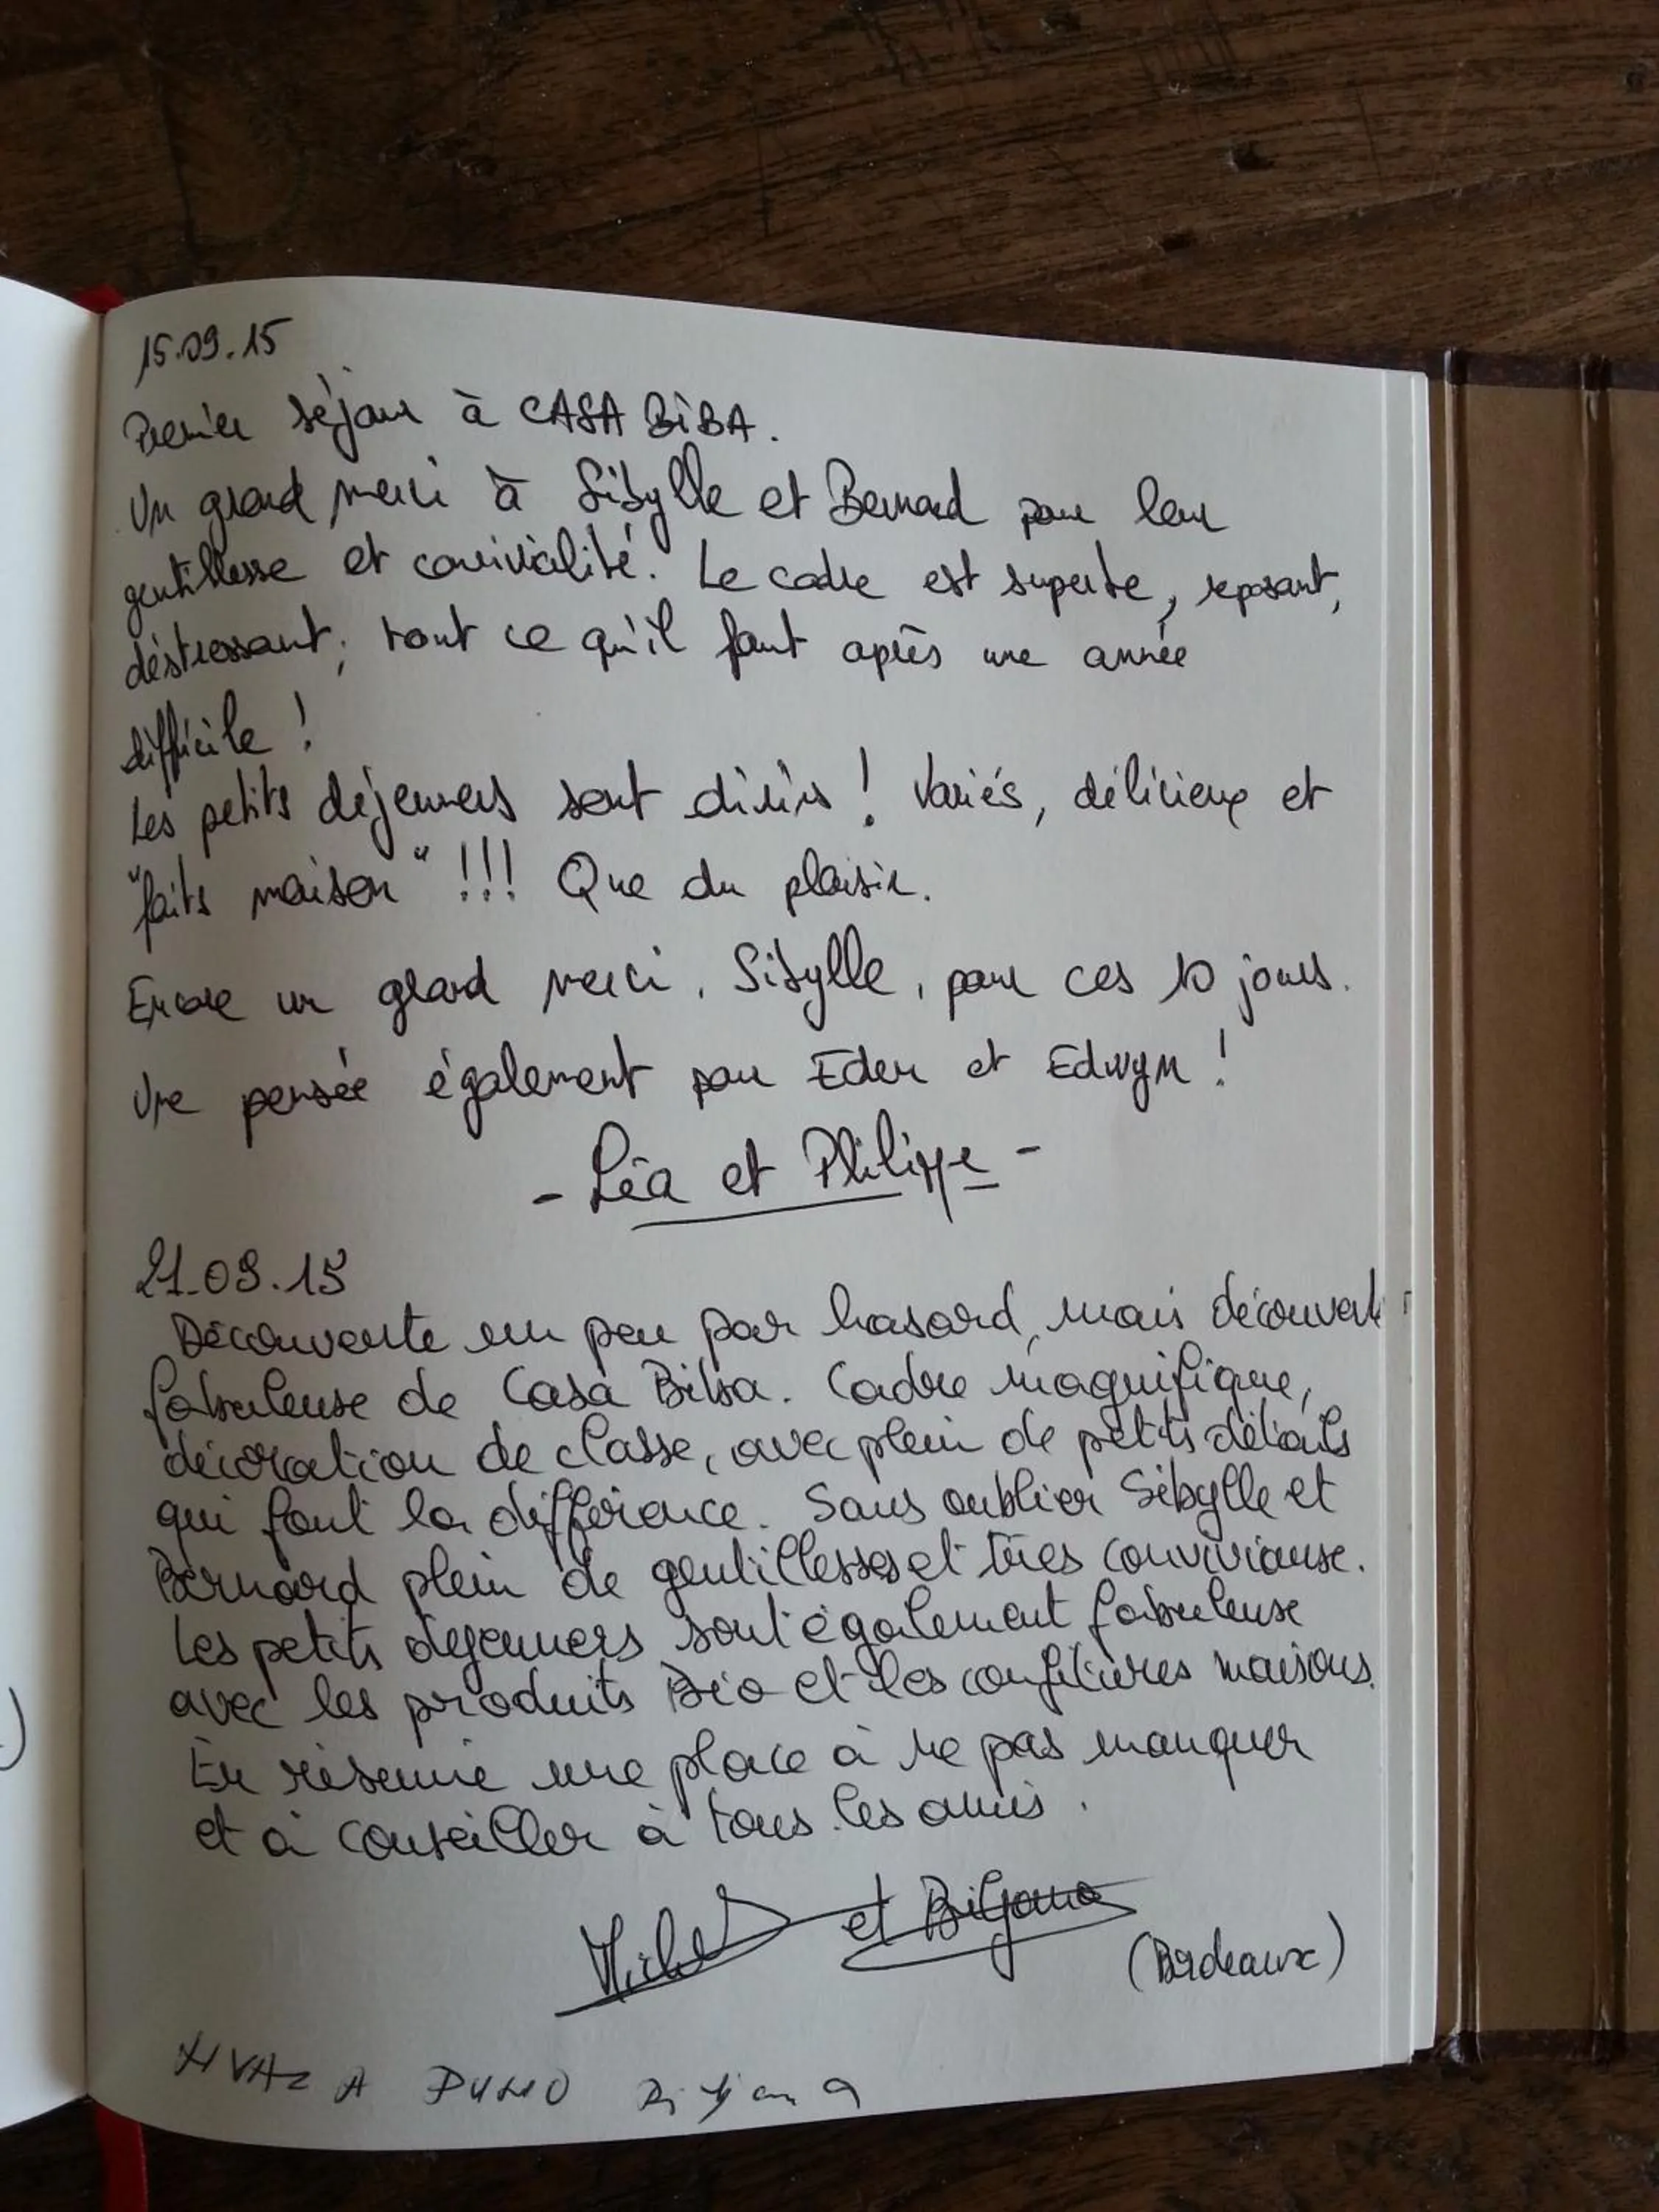 15.09.15
Premier séjour à CASA BIBA.
Un grand merci à Sibylle et Bernard pour leur
gentillesse et convivialité. Le cadre est superbe, reposant,
déstressant; tout ce qu'il faut après une année
difficile !
Les petits déjeuners sont divins ! Variés, délicieux et
"faits maison" !!! Que du plaisir.
Encore un grand merci, Sibylle, pour ces 10 jours.
Une pensée également pour Eden et Edwyn !
- Léa et Philippe -
21.09.15
Découverte un peu par hasard, mais découverte
fabuleuse de Casa Biba. Cadre magnifique,
décoration de classe, avec plein de petits détails
qui font la différence. Sans oublier Sibylle et
Bernard plein de gentillesses et très conviviause.
Les petits dejeuners sont également fabuleuse
avec les produits Bio et les confitures maisons.
En résumé une place à ne pas manquer
et à conseiller à tous les amis.
Michel et Biljana
(Bordeaux)
HVALA PUNO Biljana